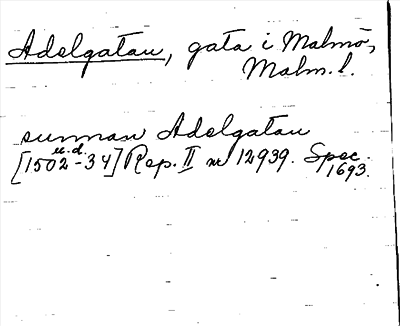 Adelgatan, gata i Malmö,
Malm. l.
sunnan Adelgatan
u.d.
[1502-34] Rep. II nr 12939. Spec.
1693.